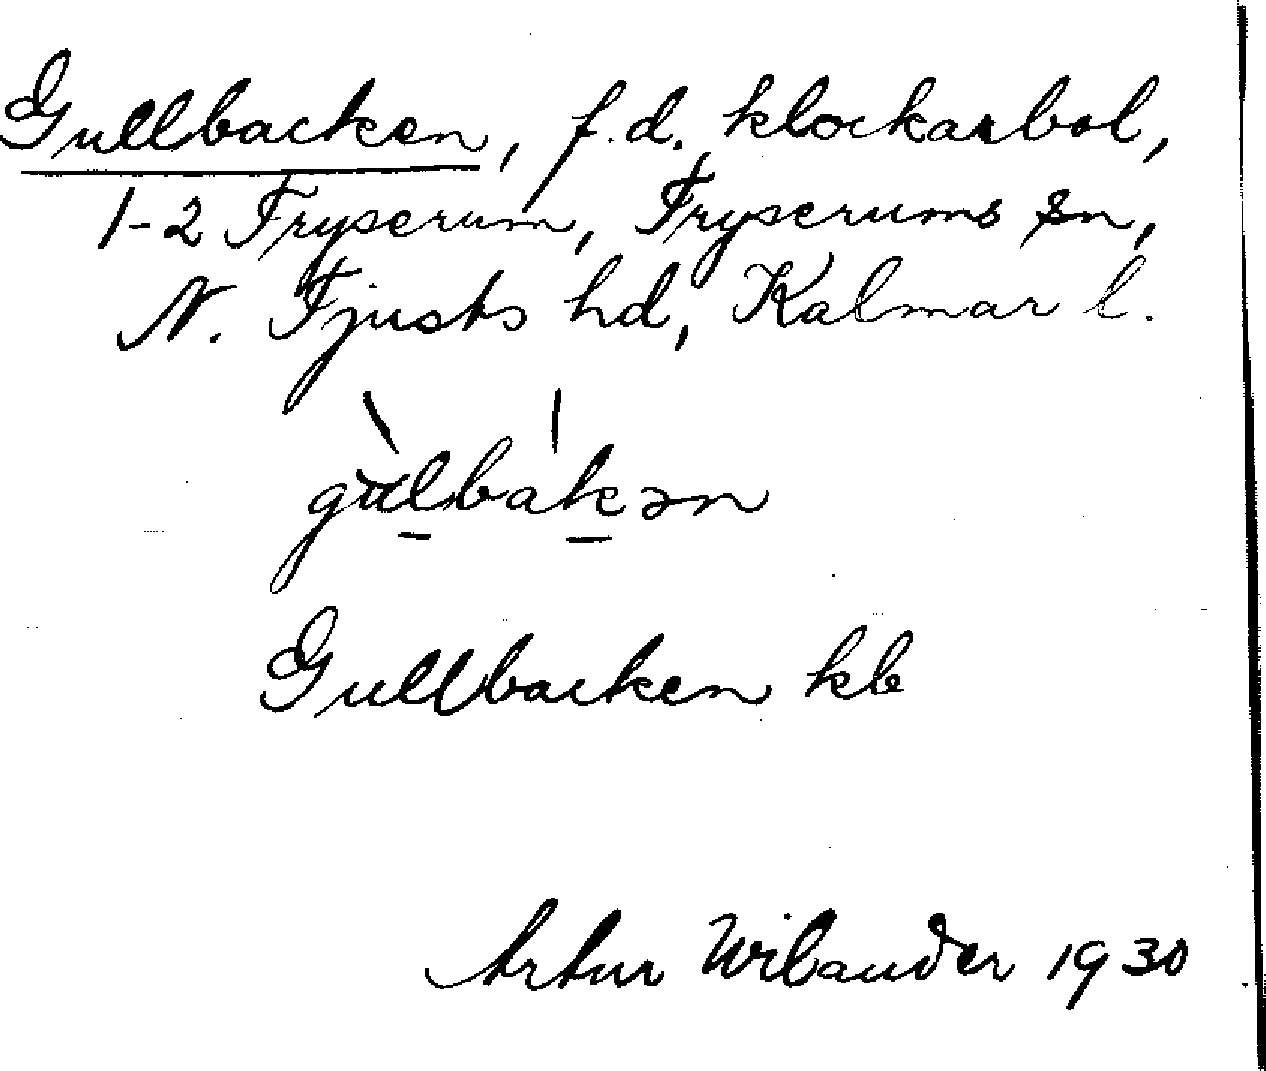 Gullbacken, f.d. klockarbol,
1-2 Fryserum, Fryserums sn,
N. Tjusts hd, Kalmar l.
gu̇lbakən
Gullbacken kb
Artur Wilander 1930